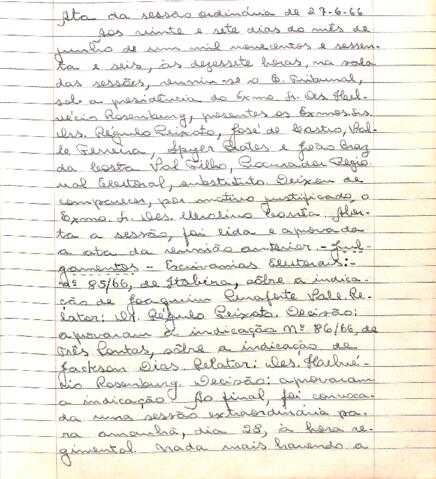 Ata da sessão ordinária de 27-6-66
Aos vinte e sete dias do mês de
junho de um mil novecentos e sessen-
ta e seis, às dezessete horas, na sala
das sessões, reuniu-se o E. Tribunal,
sob a presidência do Exmo. Sr. Des. Hel-
vécio Rosenburg, presentes os Exmos. Srs.
Drs. Régulo Peixoto, José de Castro, Val-
le Ferreira, Spyer Prates e João Braz
da Costa Val Filho, Procurador Regio-
nal Eleitoral, substituto. Deixou de
comparecer, por motivo justificado, o
Exmo. Sr. Des. Merolino Corrêa. Aber-
ta a sessão, foi lida e aprovada
a ata da reunião anterior. - Jul-
gamentos - Escrivanias Eleitorais: -
nº 85/66, de Itabira, sôbre a indica-
ção de Joaquim Penaforte Vale. Re-
lator: Dr. Régulo Peixoto. Decisão:
aprovaram a indicação. Nº 86/66, de
Três Pontas, sôbre a indicação de
Jackson Dias. Relator: Des. Helvé-
cio Rosenburg. Decisão: aprovaram
a indicação. Ao final, foi convoca-
da uma sessão extraordinária pa-
ra amanhã, dia 28, à hora re-
gimental. Nada mais havendo a